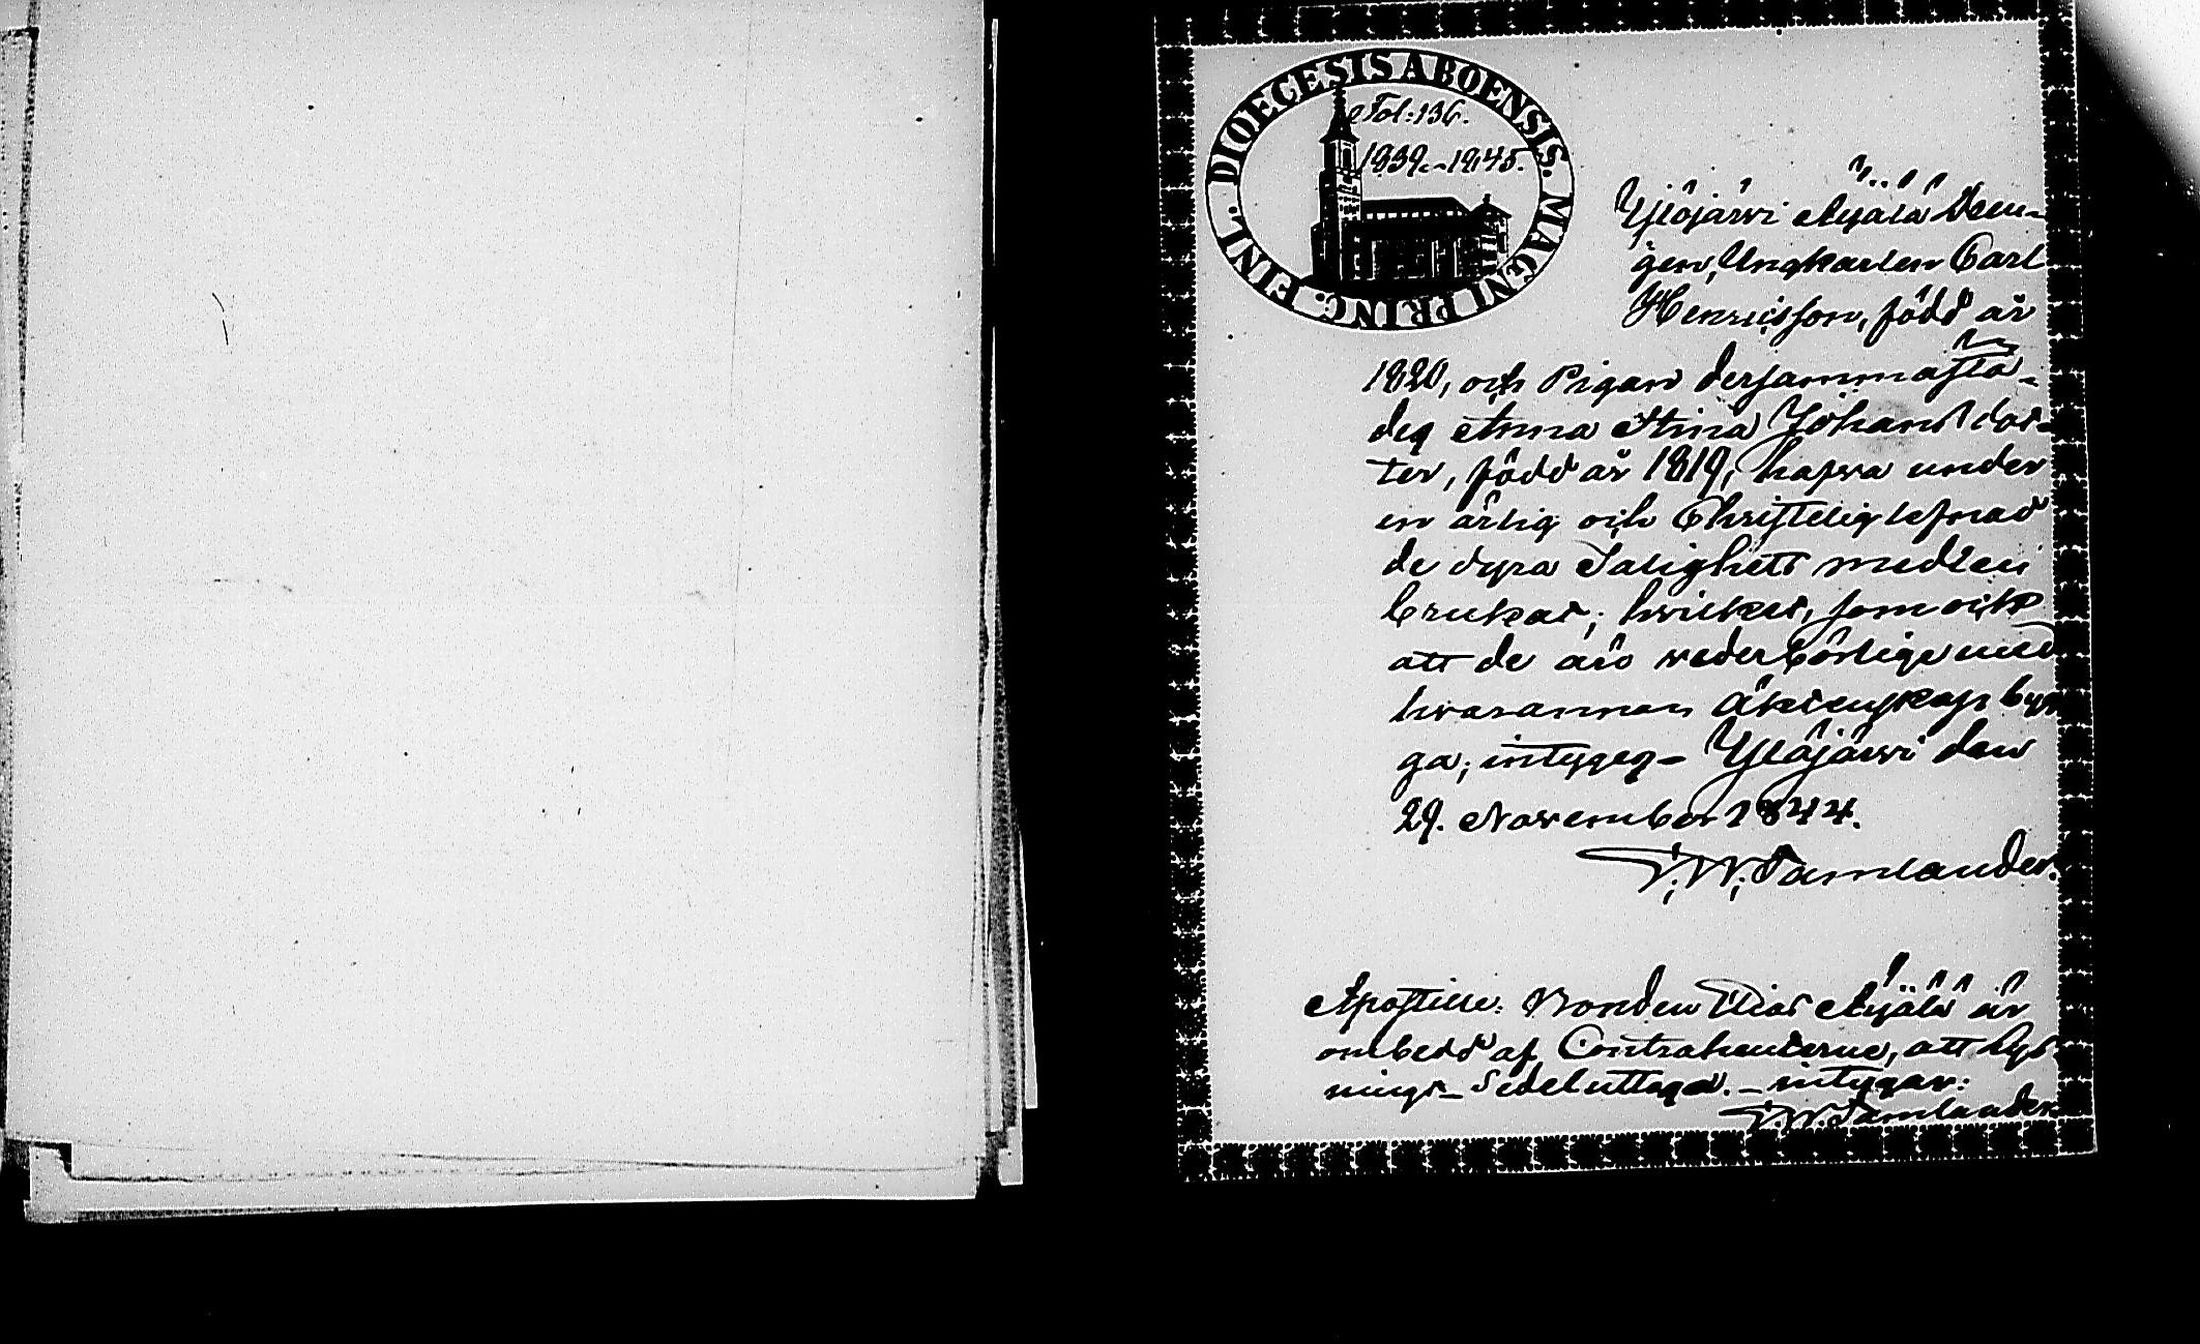 DIOECESIS ABOENSIS. MAGNI PRINC. FINL.
Fol: 136.
1839.-1845.
Ylöjärvi Äijälä Dren-
gen, Ungkarlen Carl
Henricsson, född år
1820, och Pigan dersammastä-
des Anna Stina Johans dot-
ter, född år 1819, hafva under
en ärlig och Christelig lefnad
de dyra Salighets medlen
brukat; hvilket, som ock
att de äro vederbörlige med
hvarannan Äktenskap byg
ga, intygas- Ylöjärvi den
29. November 1844.
Tamlander.
Apostille: Bonden Elias Äijälä är
ombedd af Contrahenterne, att lys-
nings-Sedel uttaga.- intygar:
Tamlander